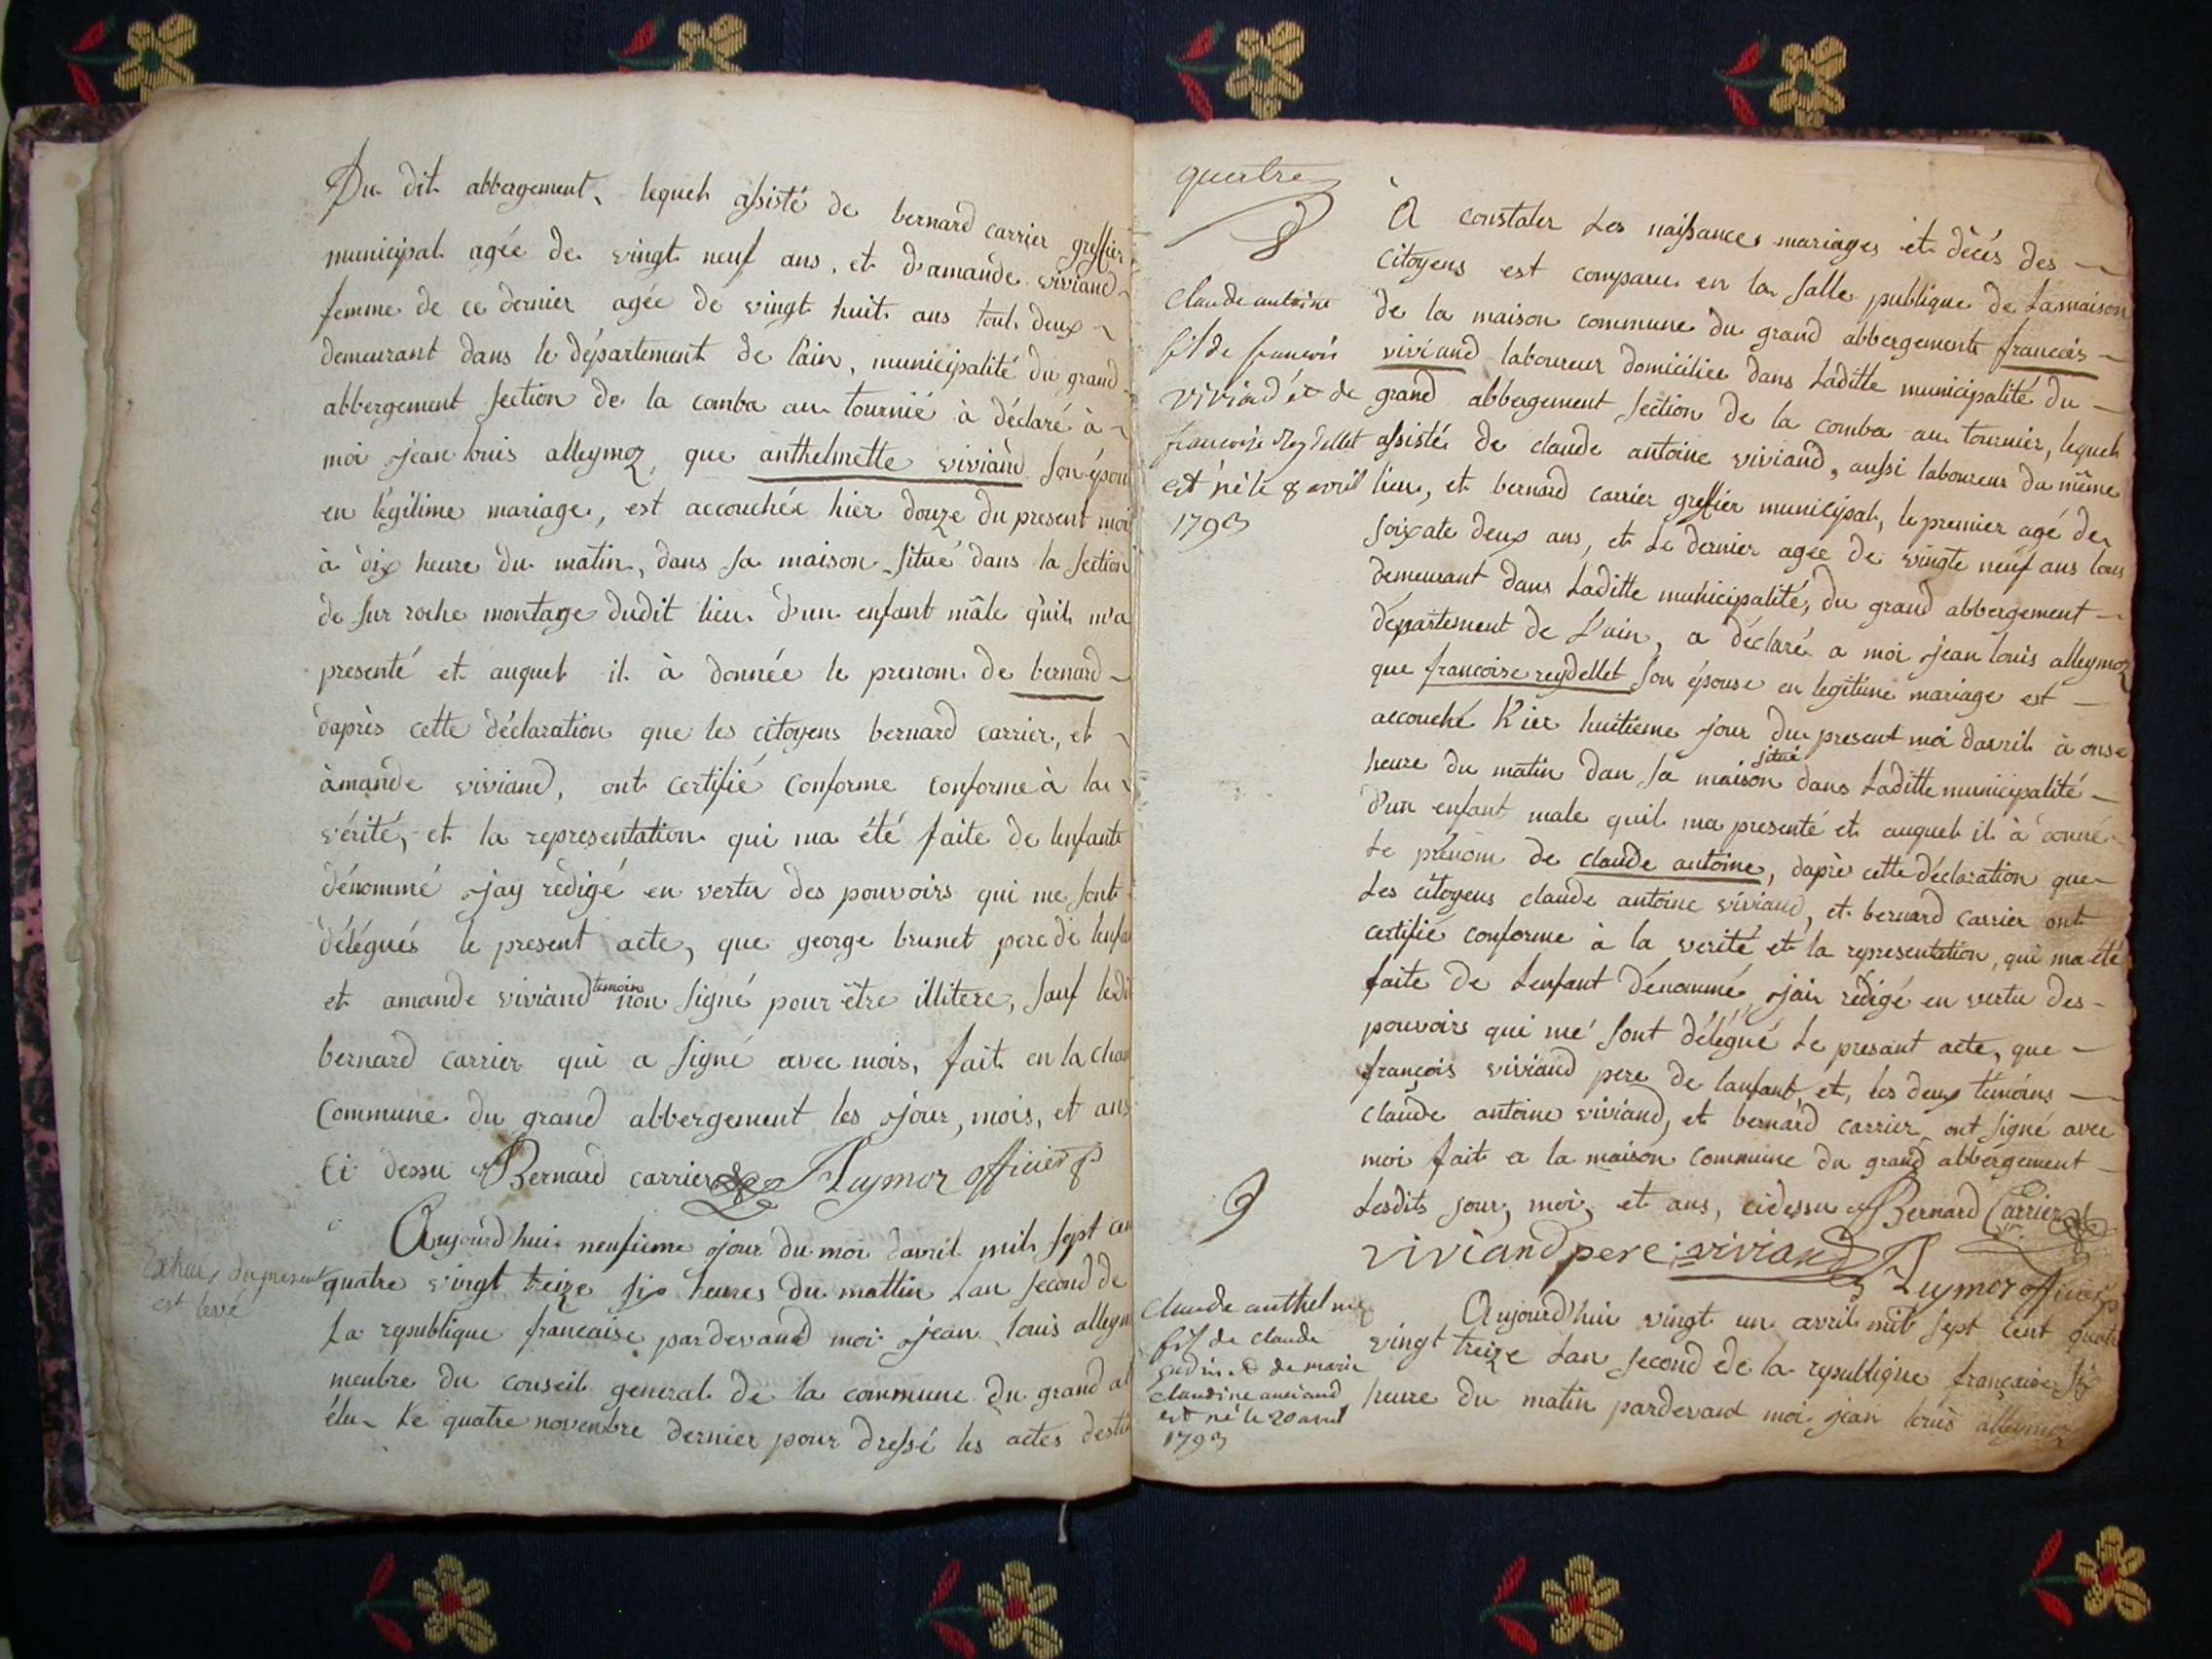 Du dit abbergement, lequel assisté de bernard carrier greffier
municipal agée de vingt neuf ans, et d'amande viviand
femme de ce dernier agée de vingt huit ans tout deux
demeurant dans le département de l'ain, municipalité du grand
abbergement section de la comba au tournié à déclaré à
moi jean louis alleymoz, que anthelmette viviand son épou
en légitime mariage, est accouchée hier douze du present moi
à dix heure du matin, dans sa maison situé dans la section
de sur roche montage dudit lieu d'un enfant mâle qu'il m'a
presenté et auquel il à donnée le prenom de bernard
daprès cette déclaration que les citoyens bernard carrier, et
àmande viviand, ont certifié conforme conforme à la
vérité, et la representation qui ma été faite de lenfant
dénommé jay rédigé en vertu des pouvoirs qui me sont
délégués le present acte, que george brunet pere de lenfan
et amande viviand temoin non signé pour être illitere, sauf ledi
bernard carrier qui a signé avec mois, fait en la cha
commune du grand abbergement les jour, mois, et ans
Ci dessu Bernard carrier Leymoz officier p
Aujourdhui neufieme jour du moi davril mil sept
Extrais du present
est levé
quatre vingt treize six heures du mattin lan second de
la republique francaise pardevand moi jean louis alleym
menbre du conseil general de la commune du grand ab
élu le quatre novembre dernier pour dressé les actes desti
quatre
8
A constater les naissances mariages et décés des
citoyens est comparu en la salle publique de lamaison
de la maison commune du grand abbergement francois
viviand laboureur domiciliée dans laditte municipalité du
grand abbergement section de la comba au tournier, lequel
assisté de claude antoine viviand, aussi laboureur du même
lieu, et bernard carrier greffier municipal, le premier agé de
soixate deux ans, et le dernier agée de vingte neuf ans tous
demeurant dans laditte municipalité, du grand abbergement
département de l'ain, a déclaré a moi jean louis alleymoz
que francoise reydellet son épouse en legitime mariage est
accouché hier huitieme jour du present moi davril à onse
heure du matin dan sa maison situé dans laditte municipalité
d'un enfant male quil ma presenté et auquel il à donné
le prénom de claude antoine, daprès cette déclaration que
les citoyens claude antoine viviand, et bernard carrier ont
certifié conforme à la verité et la representation, qui ma été
faite de lenfant dénommé jai rédigé en vertu des
pouvoirs qui me sont délégué le presant acte, que
françois viviand pere de lanfant, et, les deux témoins
claude antoine viviand, et bernard carrier ont signé avec
moi fait a la maison commune du grand abbergement
lesdits jour, moi, et ans, cidessu Bernard Carrier
viviand pere viviand Leymoz officier p
claude antoine
fil de françois
viviad et de
francoise Reydellet
est né le 8 avril
1793
9
Aujourd'hui vingt un avril mil sept cent quatr
vingt treize lan second de la republique française six
heure du matin pardevant moi jean louis alleymoz
claude anthelme
fil de claude
et de marie
claudine
est né le 20 avril
1793